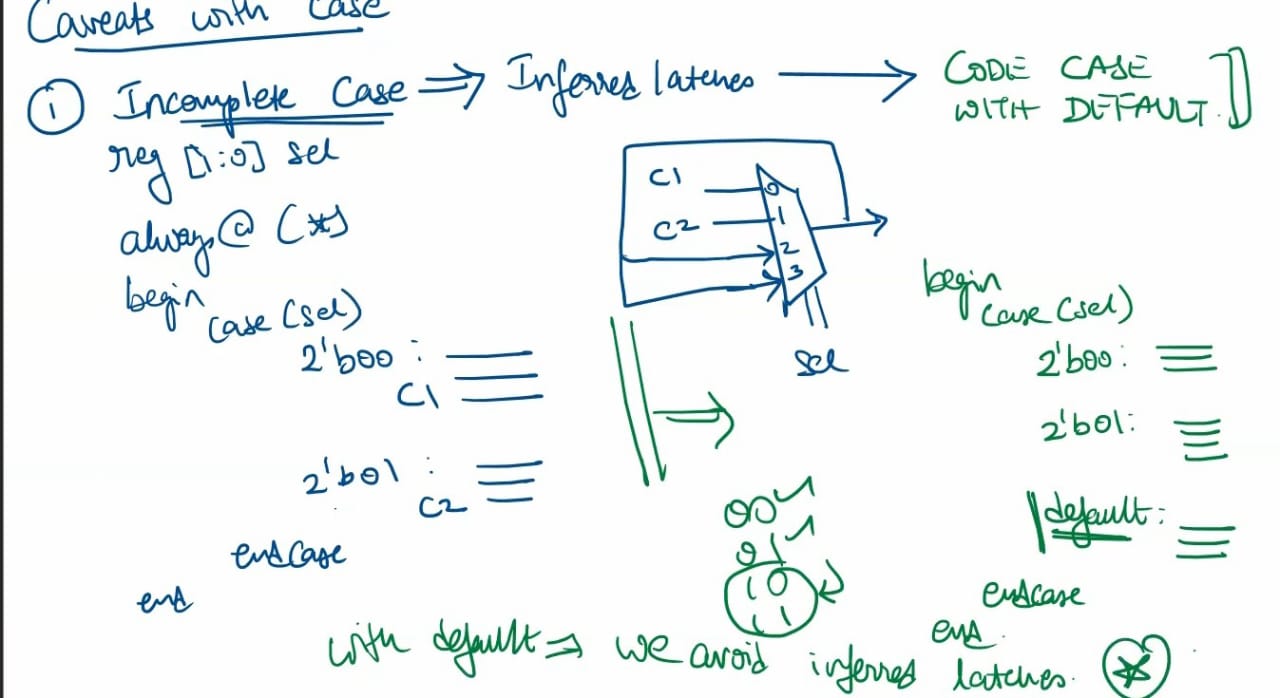 Caveats with Case
① Incomplete Case ⇒ Inferred latches → CODE CASE
WITH DEFAULT ]
reg [1:0] sel
always @ (*)
begin
case (sel)
2'b00 :
C1
2'b01 :
C2
endcase
end
C1
C2
0
1
2
3
sel
00 ✓
01 ✓
10
11
begin
case (sel)
2'b00:
2'b01:
default:
endcase
end.
with default ⇒ we avoid inferred latches.